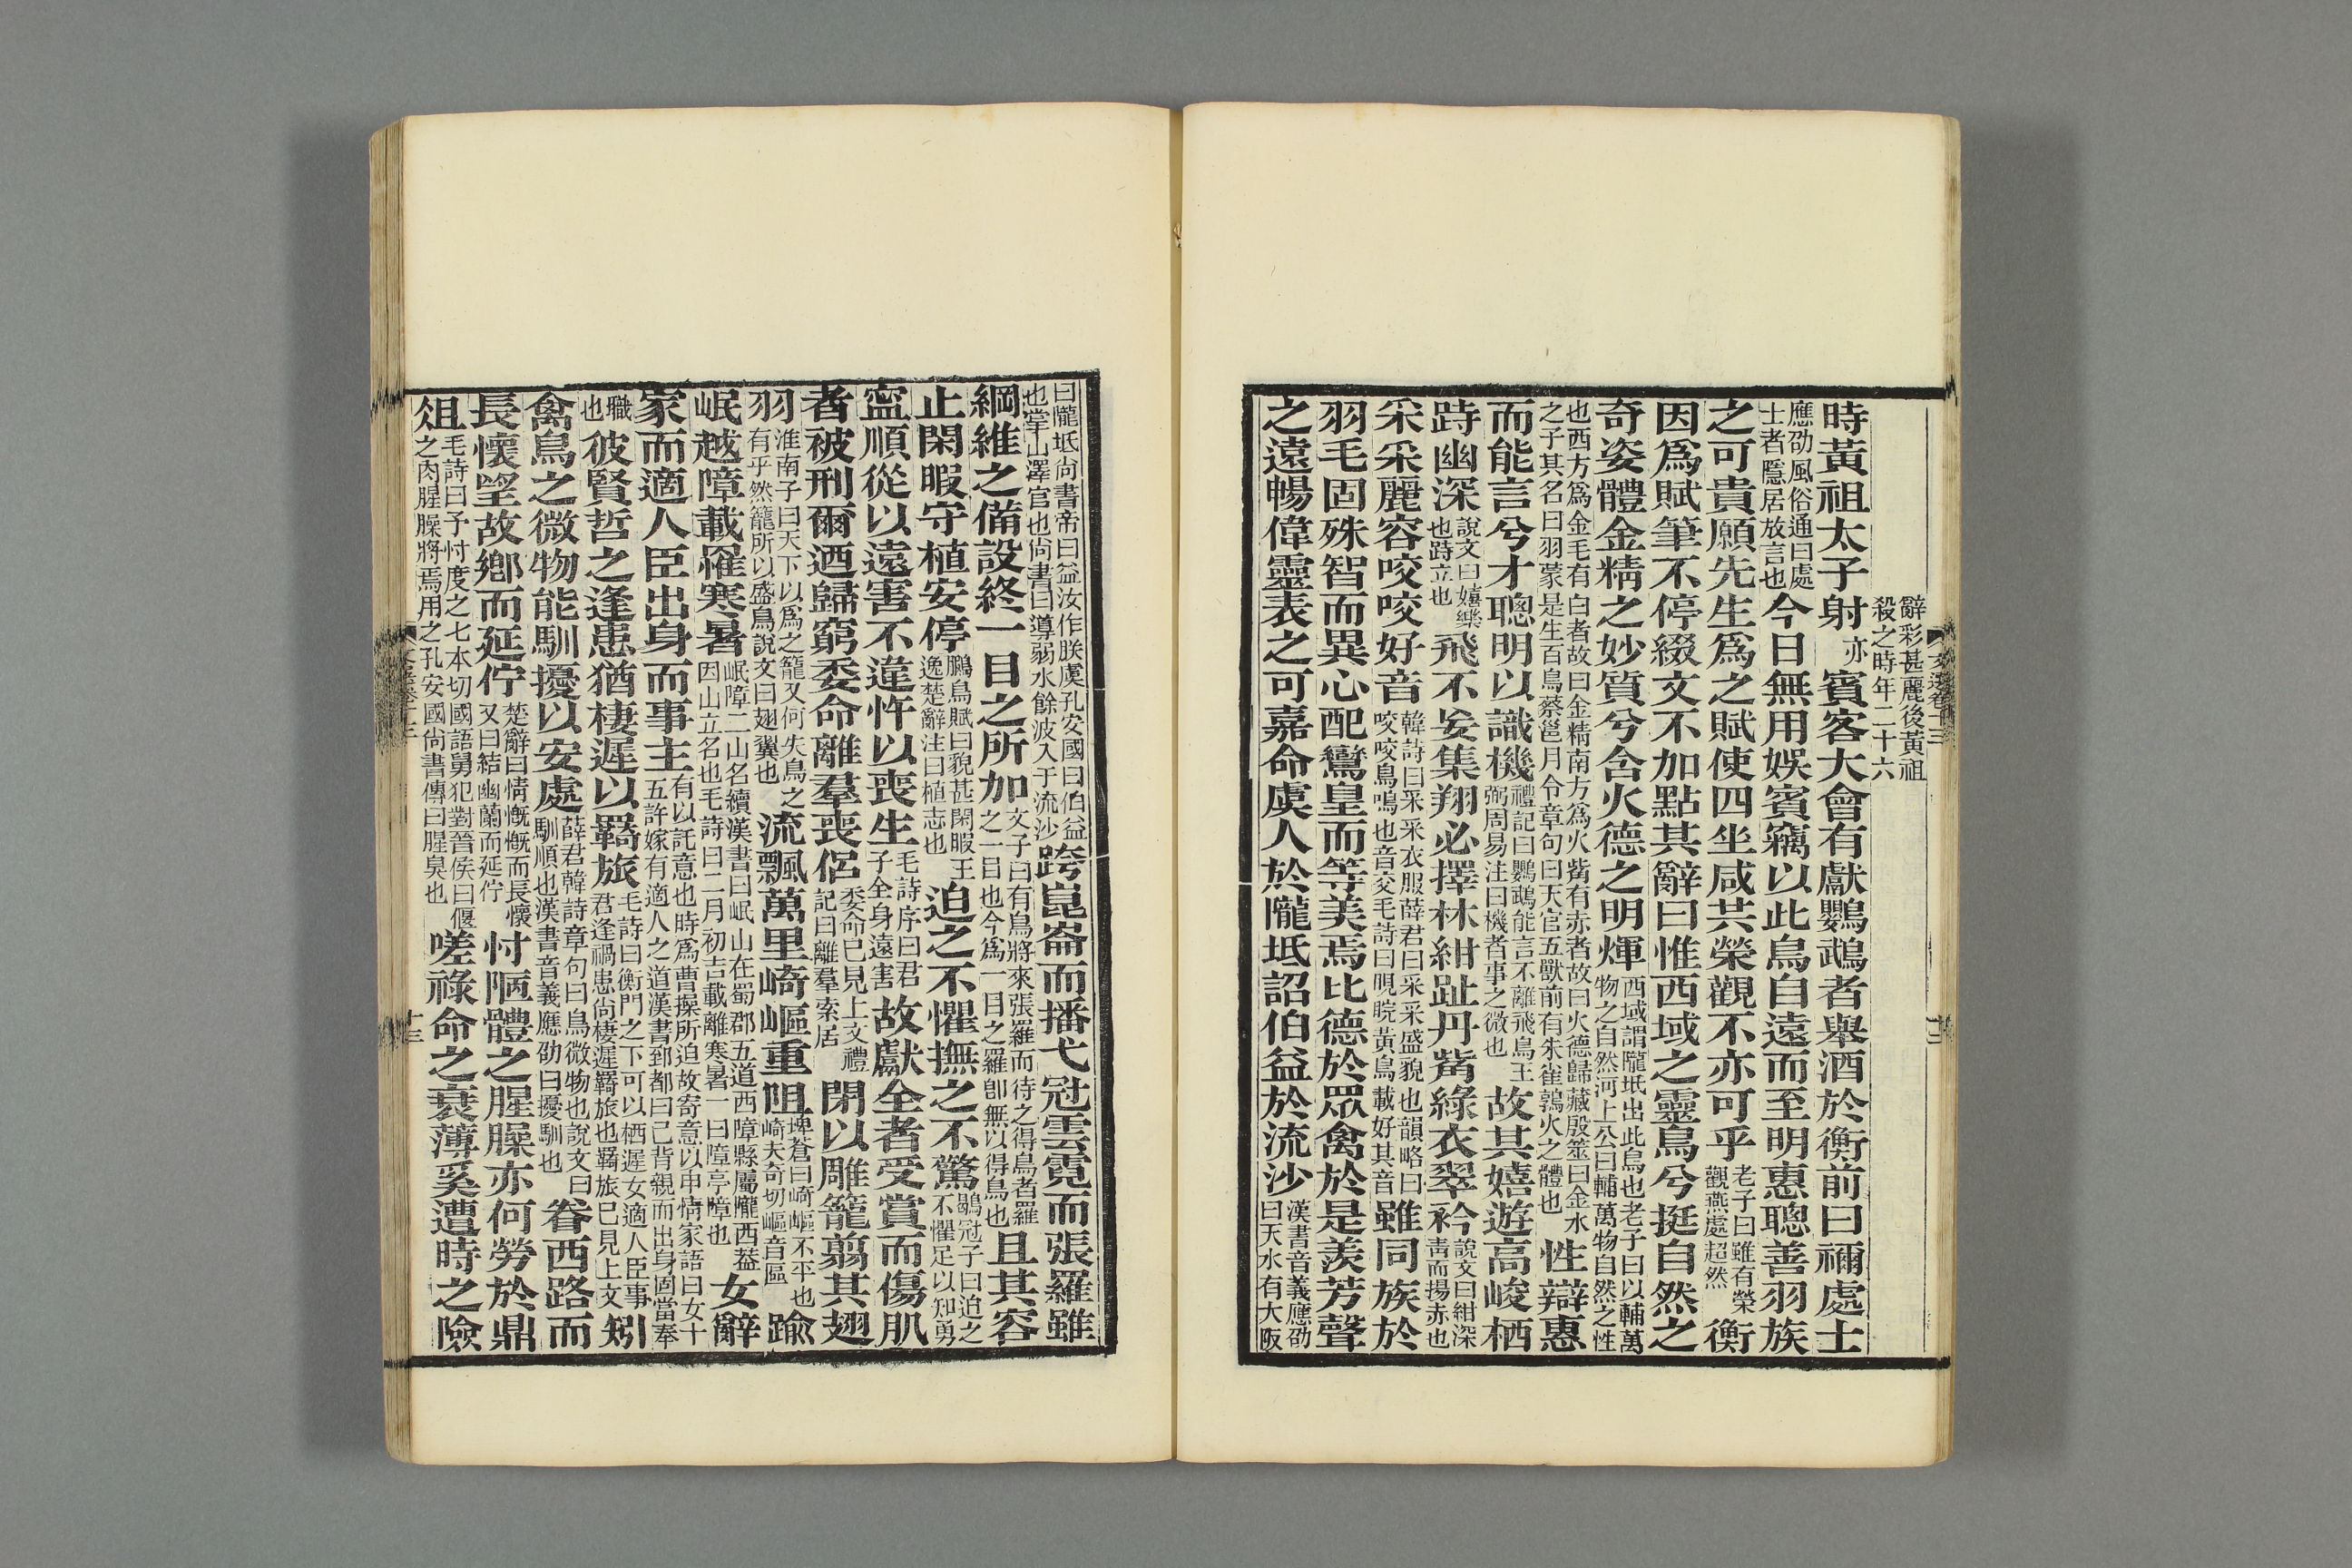 辭彩甚麗後黃祖殺之時年二十六
時黃祖太子射亦賓客大會有獻鸚鵡者舉酒於衡前曰禰處士
應劭風俗通曰處士者隱居放言也今日無用娛賓竊以此鳥自遠而至明惠聰善羽族
之可貴願先生爲之賦使四坐咸共榮觀不亦可乎老子曰雖有榮觀燕處超然衡
因爲賦筆不停綴文不加點其辭曰惟西域之靈鳥兮挺自然之
奇姿體金精之妙質兮含火德之明煇西域謂隴坻出此鳥也老子曰以輔萬物之自然河上公曰輔萬物自然之性
也西方爲金毛有白者故曰金精南方爲火觜有赤者故曰火德歸藏殷筮曰金水之子其名曰羽蒙是生百鳥蔡邕月令章句曰天官五獸前有朱雀鶉火之體也性辯惠
而能言兮才聰明以識機禮記曰鸚鵡能言不離飛鳥王弼周易注曰機者事之微也故其嬉遊高峻栖
跱幽深說文曰嬉樂也跱立也飛不妄集翔必擇林紺趾丹觜綠衣翠衿說文曰紺深青而揚赤也
采采麗容咬咬好音韓詩曰采采衣服薛君曰采采盛貌也韻略曰咬咬鳥鳴也音交毛詩曰睍睆黃鳥載好其音雖同族於
羽毛固殊智而異心配鸞皇而等美焉比德於眾禽於是羨芳聲
之遠暢偉靈表之可嘉命虞人於隴坻詔伯益於流沙漢書音義應劭曰天水有大阪
曰隴坻尚書帝曰益汝作朕虞孔安國曰伯益也掌山澤官也尚書曰導弱水餘波入于流沙跨崑崙而播弋冠雲霓而張羅雖
綱維之備設終一目之所加文子曰有鳥將來張羅而待之得鳥者羅之一目也今爲一目之羅卽無以得鳥也且其容
止閑暇守植安停鵩鳥賦曰貌甚閑暇王逸楚辭注曰植志也迫之不懼撫之不驚鶡冠子曰迫之不懼足以知勇
寧順從以遠害不違忤以喪生毛詩序曰君子全身遠害故獻全者受賞而傷肌
者被刑爾迺歸窮委命離羣喪侶委命已見上文禮記曰離羣索居閉以雕籠翦其翅
羽淮南子曰天下以爲之籠又何失鳥之有乎然籠所以盛鳥說文曰翅翼也流飄萬里崎嶇重阻埤蒼曰崎嶇不平也崎夫奇切嶇音區踰
岷越障載罹寒暑岷障二山名續漢書曰岷山在蜀郡五道西障縣屬隴西葢因山立名也毛詩曰二月初吉載離寒暑一曰障亭障也女辭
家而適人臣出身而事主有以託意也時爲曹操所迫故寄意以申情家語曰女十五許嫁有適人之道漢書郅都曰已背親而出身固當奉
職也彼賢哲之逢患猶棲遲以羇旅毛詩曰衡門之下可以栖遲女適人臣事君逢禍患尚棲遲羇旅也羇旅已見上文矧
禽鳥之微物能馴擾以安處薛君韓詩章句曰鳥微物也說文曰馴順也漢書音義應劭曰擾馴也眷西路而
長懷望故鄉而延佇楚辭曰情慨慨而長懷又曰結幽蘭而延佇忖陋體之腥臊亦何勞於鼎
俎毛詩曰予忖度之七本切國語舅犯對晉侯曰偃之肉腥臊將焉用之孔安國尚書傳曰腥臭也嗟祿命之衰薄奚遭時之險
十三